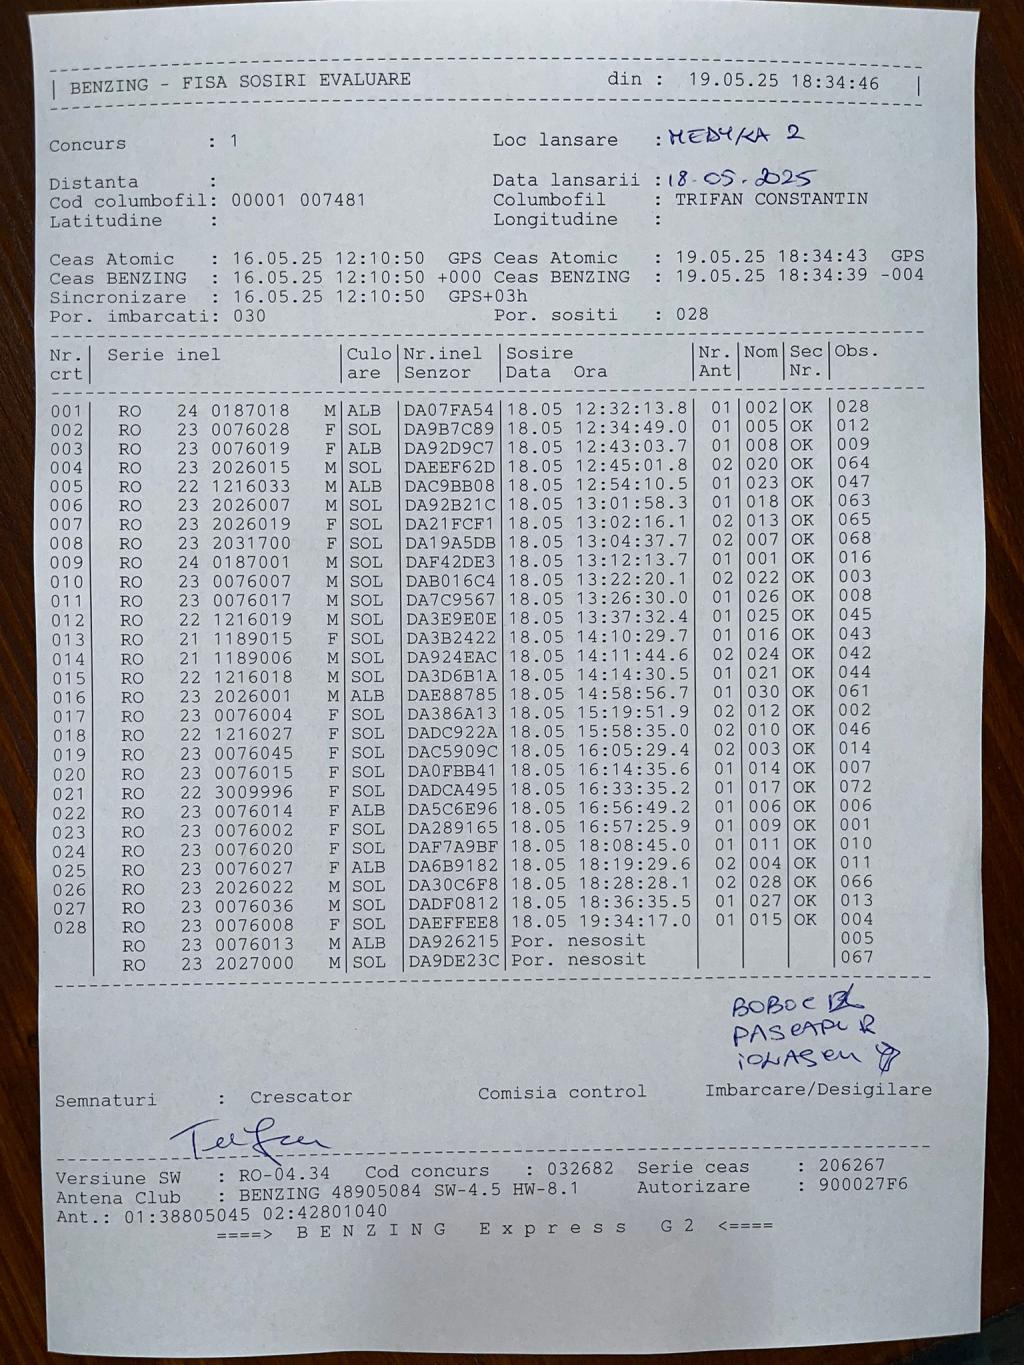 BENZING - FISA SOSIRI EVALUARE din : 19.05.25 18:34:46
Concurs : 1 Loc lansare : MEDYKA 2
Distanta : Data lansarii : 18-05-2025
Cod columbofil: 00001 007481 Columbofil : TRIFAN CONSTANTIN
Latitudine : Longitudine :
Ceas Atomic : 16.05.25 12:10:50 GPS Ceas Atomic : 19.05.25 18:34:43 GPS
Ceas BENZING : 16.05.25 12:10:50 +000 Ceas BENZING : 19.05.25 18:34:39 -004
Sincronizare : 16.05.25 12:10:50 GPS+03h
Por. imbarcati: 030 Por. sositi : 028
Nr.| Serie inel |Culo|Nr.inel |Sosire |Nr.|Nom|Sec|Obs.
crt| |are |Senzor |Data Ora |Ant| |Nr.|
001| RO 24 0187018 M|ALB|DA07FA54|18.05 12:32:13.8| 01|002|OK |028
002| RO 23 0076028 F|SOL|DA9B7C89|18.05 12:34:49.0| 01|005|OK |012
003| RO 23 0076019 F|ALB|DA92D9C7|18.05 12:43:03.7| 01|008|OK |009
004| RO 23 2026015 M|SOL|DAEEF62D|18.05 12:45:01.8| 02|020|OK |064
005| RO 22 1216033 M|ALB|DAC9BB08|18.05 12:54:10.5| 01|023|OK |047
006| RO 23 2026007 M|SOL|DA92B21C|18.05 13:01:58.3| 01|018|OK |063
007| RO 23 2026019 F|SOL|DA21FCF1|18.05 13:02:16.1| 02|013|OK |065
008| RO 23 2031700 F|SOL|DA19A5DB|18.05 13:04:37.7| 02|007|OK |068
009| RO 24 0187001 M|SOL|DAF42DE3|18.05 13:12:13.7| 01|001|OK |016
010| RO 23 0076007 M|SOL|DAB016C4|18.05 13:22:20.1| 02|022|OK |003
011| RO 23 0076017 M|SOL|DA7C9567|18.05 13:26:30.0| 01|026|OK |008
012| RO 22 1216019 M|SOL|DA3E9E0E|18.05 13:37:32.4| 01|025|OK |045
013| RO 21 1189015 F|SOL|DA3B2422|18.05 14:10:29.7| 01|016|OK |043
014| RO 21 1189006 M|SOL|DA924EAC|18.05 14:11:44.6| 02|024|OK |042
015| RO 22 1216018 M|SOL|DA3D6B1A|18.05 14:14:30.5| 01|021|OK |044
016| RO 23 2026001 M|ALB|DAE88785|18.05 14:58:56.7| 01|030|OK |061
017| RO 23 0076004 F|SOL|DA386A13|18.05 15:19:51.9| 02|012|OK |002
018| RO 22 1216027 F|SOL|DADC922A|18.05 15:58:35.0| 02|010|OK |046
019| RO 23 0076045 F|SOL|DAC5909C|18.05 16:05:29.4| 02|003|OK |014
020| RO 23 0076015 F|SOL|DA0FBB41|18.05 16:14:35.6| 01|014|OK |007
021| RO 22 3009996 F|SOL|DADCA495|18.05 16:33:35.2| 01|017|OK |072
022| RO 23 0076014 F|ALB|DA5C6E96|18.05 16:56:49.2| 01|006|OK |006
023| RO 23 0076002 F|SOL|DA289165|18.05 16:57:25.9| 01|009|OK |001
024| RO 23 0076020 F|SOL|DAF7A9BF|18.05 18:08:45.0| 01|011|OK |010
025| RO 23 0076027 F|ALB|DA6B9182|18.05 18:19:29.6| 02|004|OK |011
026| RO 23 2026022 M|SOL|DA30C6F8|18.05 18:28:28.1| 02|028|OK |066
027| RO 23 0076036 M|SOL|DADF0812|18.05 18:36:35.5| 01|027|OK |013
028| RO 23 0076008 F|SOL|DAEFFEE8|18.05 19:34:17.0| 01|015|OK |004
RO 23 0076013 M|ALB|DA926215|Por. nesosit | | | |005
RO 23 2027000 M|SOL|DA9DE23C|Por. nesosit | | | |067
BOBOC
Semnaturi : Crescator Comisia control Imbarcare/Desigilare
Versiune SW : RO-04.34 Cod concurs : 032682 Serie ceas : 206267
Antena Club : BENZING 48905084 SW-4.5 HW-8.1 Autorizare : 900027F6
Ant.: 01:38805045 02:42801040
====> B E N Z I N G E x p r e s s G 2 <====